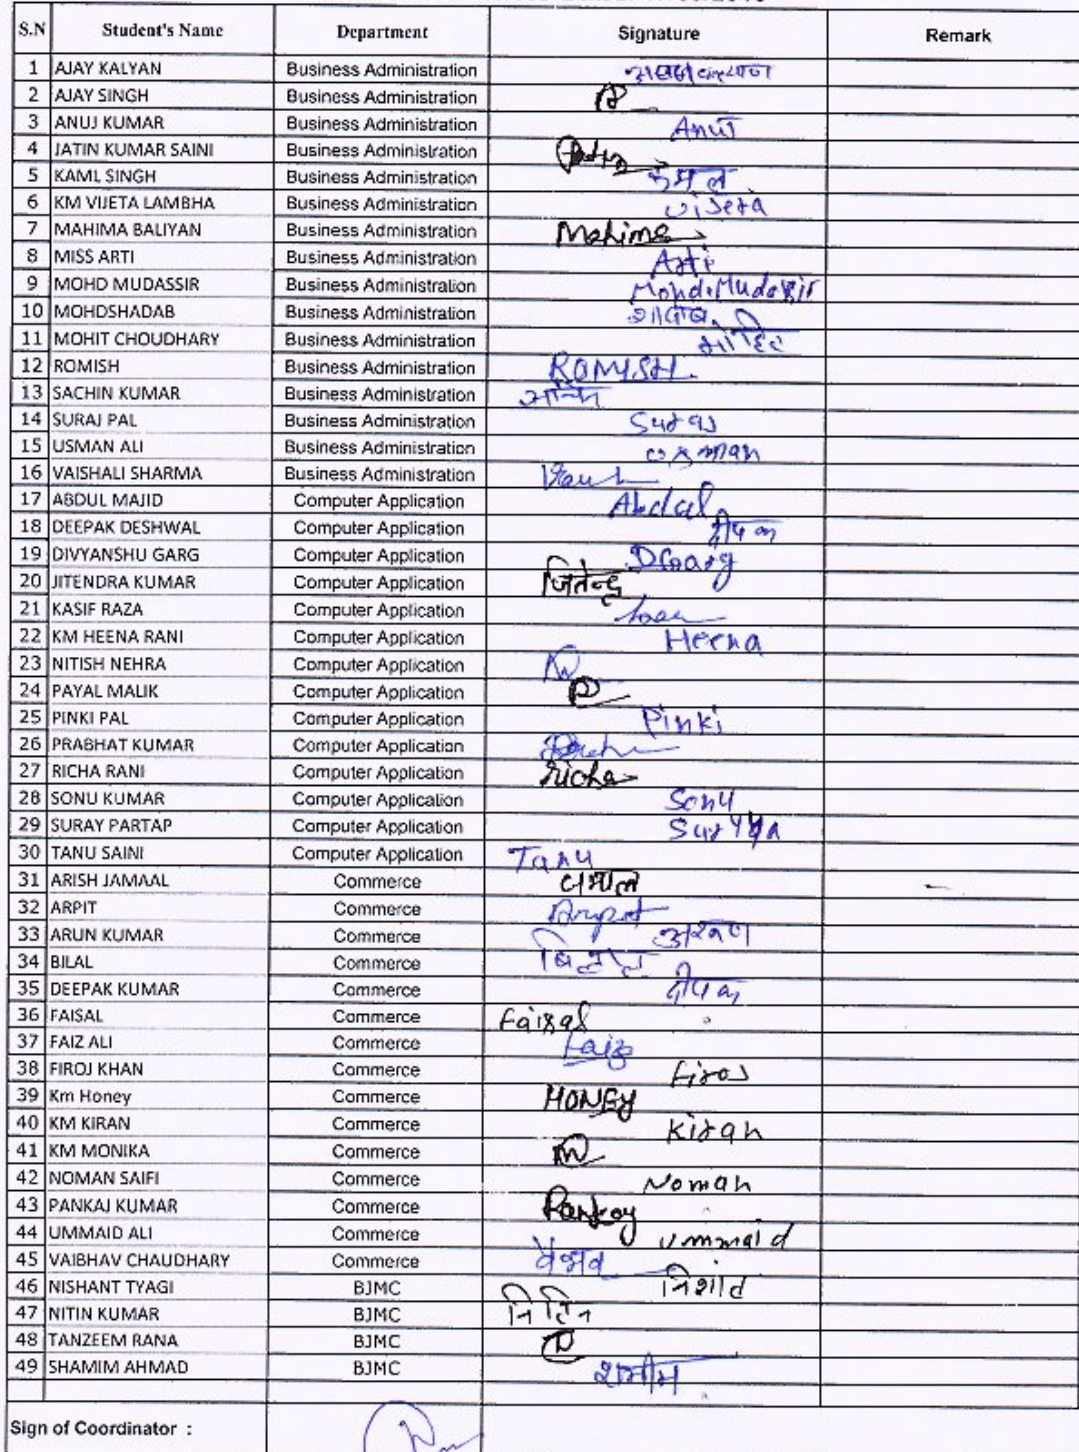 S.N Student's Name Department Signature Remark
1 AJAY KALYAN Business Administration
2 AJAY SINGH Business Administration
3 ANUJ KUMAR Business Administration Anuj
4 JATIN KUMAR SAINI Business Administration
5 KAML SINGH Business Administration कमल
6 KM VIJETA LAMBHA Business Administration vijeta
7 MAHIMA BALIYAN Business Administration Mahima
8 MISS ARTI Business Administration Arti
9 MOHD MUDASSIR Business Administration Mohd. Mudassir
10 MOHDSHADAB Business Administration शादाब
11 MOHIT CHOUDHARY Business Administration मोहित
12 ROMISH Business Administration ROMISH.
13 SACHIN KUMAR Business Administration
14 SURAJ PAL Business Administration Suraj
15 USMAN ALI Business Administration usman
16 VAISHALI SHARMA Business Administration
17 ABDUL MAJID Computer Application Abdul
18 DEEPAK DESHWAL Computer Application दीपक
19 DIVYANSHU GARG Computer Application DGarg
20 JITENDRA KUMAR Computer Application जितेन्द्र
21 KASIF RAZA Computer Application
22 KM HEENA RANI Computer Application Heena
23 NITISH NEHRA Computer Application
24 PAYAL MALIK Computer Application
25 PINKI PAL Computer Application Pinki
26 PRABHAT KUMAR Computer Application
27 RICHA RANI Computer Application Richa
28 SONU KUMAR Computer Application Sonu
29 SURAY PARTAP Computer Application
30 TANU SAINI Computer Application Tanu
31 ARISH JAMAAL Commerce
32 ARPIT Commerce Arpit
33 ARUN KUMAR Commerce
34 BILAL Commerce
35 DEEPAK KUMAR Commerce दीपक
36 FAISAL Commerce Faisal
37 FAIZ ALI Commerce Faiz
38 FIROJ KHAN Commerce Firoj
39 Km Honey Commerce HONEY
40 KM KIRAN Commerce Kiran
41 KM MONIKA Commerce
42 NOMAN SAIFI Commerce Noman
43 PANKAJ KUMAR Commerce Pankaj
44 UMMAID ALI Commerce Ummaid
45 VAIBHAV CHAUDHARY Commerce वैभव
46 NISHANT TYAGI BJMC निशांत
47 NITIN KUMAR BJMC नितिन
48 TANZEEM RANA BJMC
49 SHAMIM AHMAD BJMC शमीम
Sign of Coordinator :